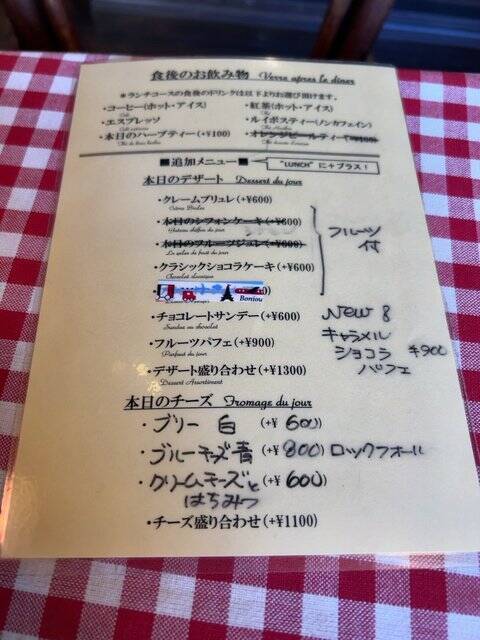 食後のお飲み物 Verre apres le diner
＊ランチコースの食後のドリンクは以下よりお選び頂けます。
・コーヒー(ホット・アイス) ・紅茶(ホット・アイス)
Café Thé
・エスプレッソ ・ルイボスティー(ノンカフェイン)
・本日のハーブティー(+¥100) ・オレンジピールティー(+¥100)
■追加メニュー■ "LUNCH" に+プラス！
本日のデザート Dessert du jour
・クレームブリュレ(+¥600)
Crème Brulee
・本日のシフォンケーキ(+¥600)
Gateau chiffon du jour
・本日のフルーツジュレ(+¥600)
La gelee de fruit du jour
・クラシックショコラケーキ(+¥600)
Chocolat classique
フルーツ
付
Bonjou
・チョコレートサンデー(+¥600)
Sundae au chocolat
・フルーツパフェ(+¥900)
Parfait du jour
・デザート盛り合わせ(+¥1300)
Dessert Assortiment
New
キャラメル
ショコラ ¥900
パフェ
本日のチーズ Fromage du jour
・ブリー 白 (+¥ 600)
・ブルーチーズ青 (+¥ 800) ロックフォール
・クリームチーズと (+¥ 600)
はちみつ
・チーズ盛り合わせ(+¥1100)